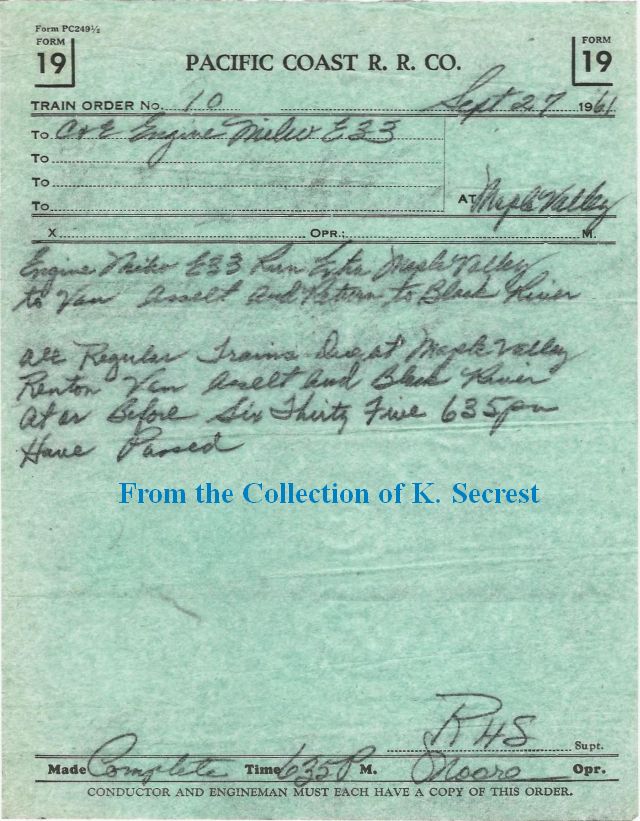 Form PC249½
FORM 19
FORM 19
PACIFIC COAST R. R. CO.
TRAIN ORDER No. 10 Sept 27 1961
To C&E Engine Milw E33
To
To
To
AT Maple Valley
X OPR.: M.
Engine Milw E33 Run Extra Maple Valley
to Van Asselt and Return to Black River
All Regular Trains Due at Maple Valley
Renton Van Asselt and Black River
At or Before Six Thirty Five 635pm
Have Passed
From the Collection of K. Secrest
RHS Supt.
Made Complete Time 635P M. Moore Opr.
CONDUCTOR AND ENGINEMAN MUST EACH HAVE A COPY OF THIS ORDER.